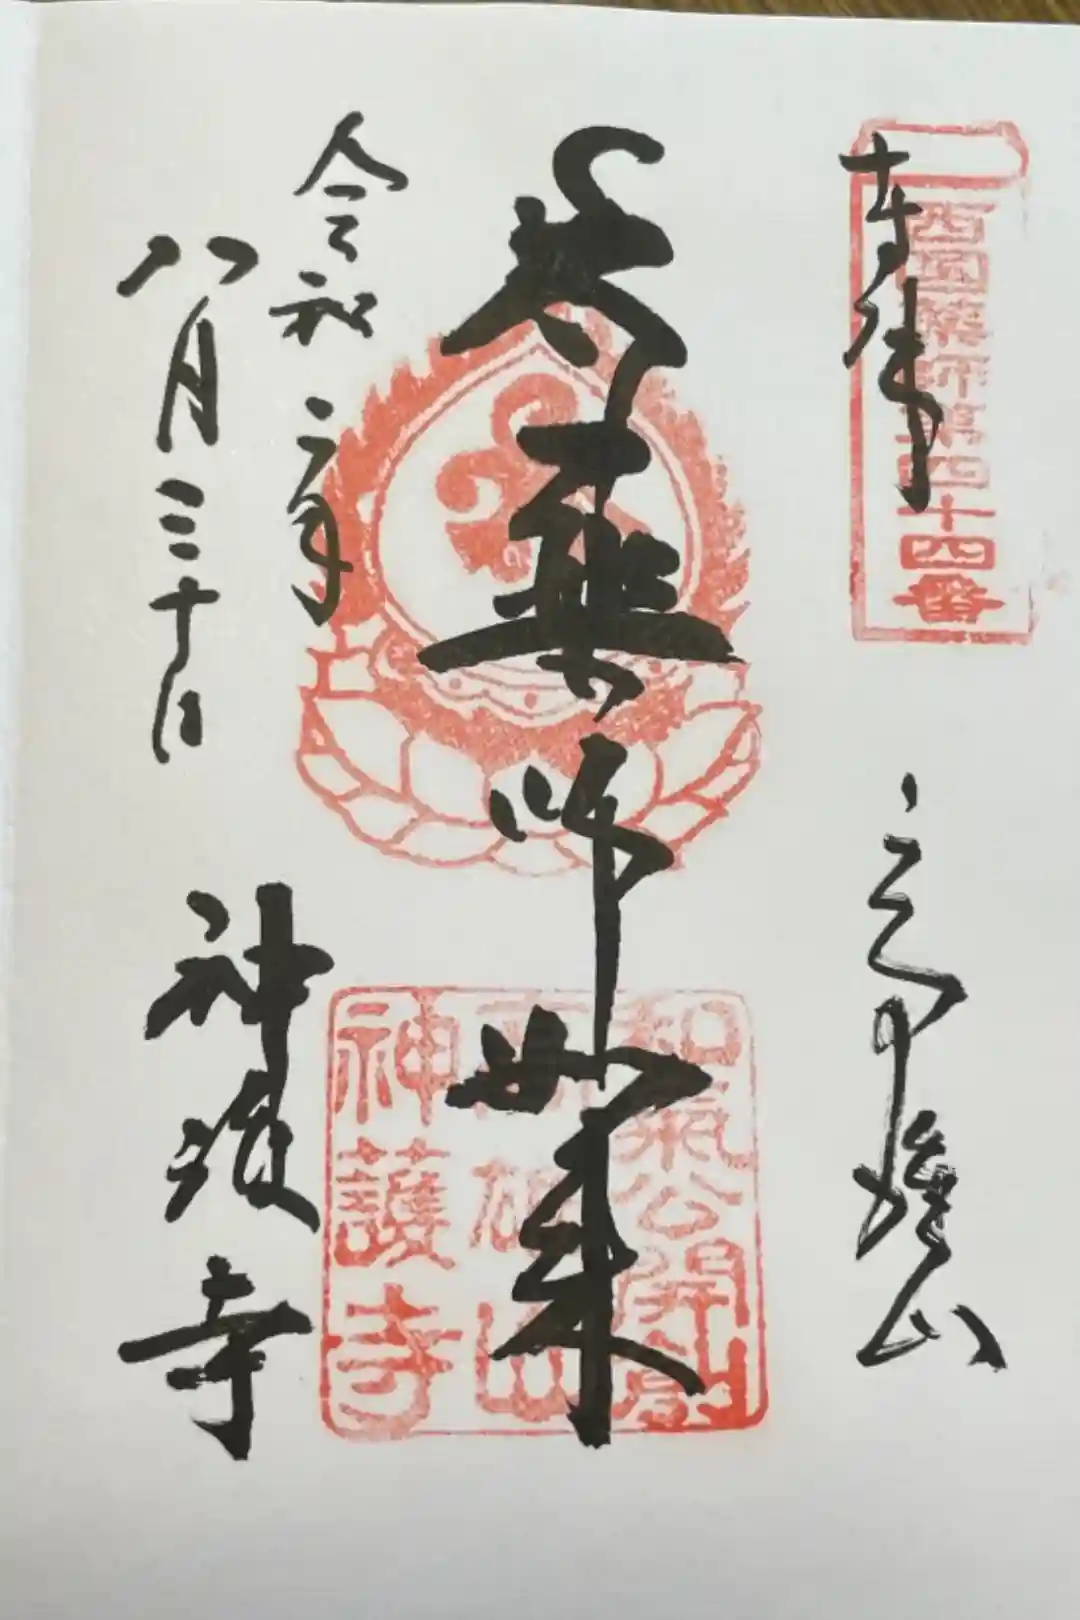 奉拝
西国薬師第四十四番
高雄山
薬師如来
和気公開創
神護寺
令和二年
八月三十日
神護寺